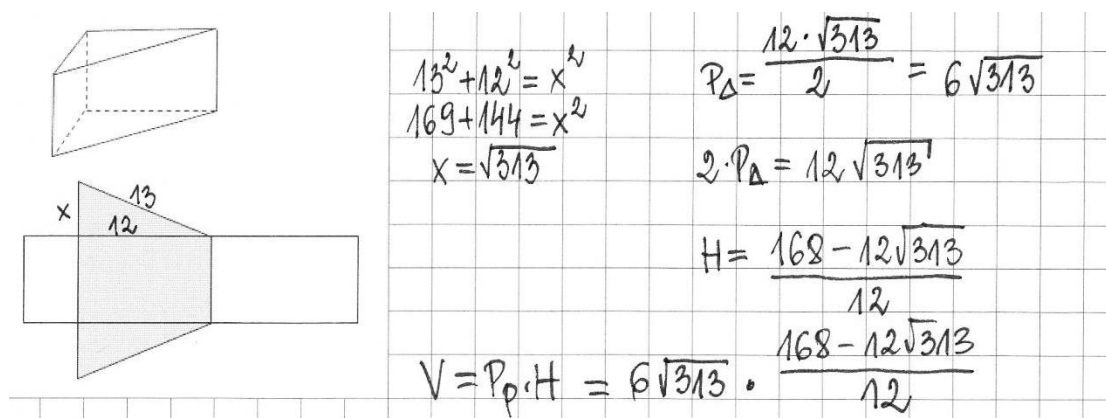 x
13
12
13² + 12² = x²
169 + 144 = x²
x = √313
P_Δ = (12 · √313)/2 = 6√313
2 · P_Δ = 12√313
H = (168 − 12√313)/12
V = P_p · H = 6√313 · (168 − 12√313)/12